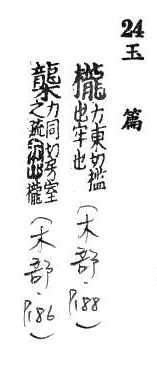 24玉篇
櫳力東切檻
也牢也
(木部·P188)
力同切房室
之疏櫳
(木部·P186)